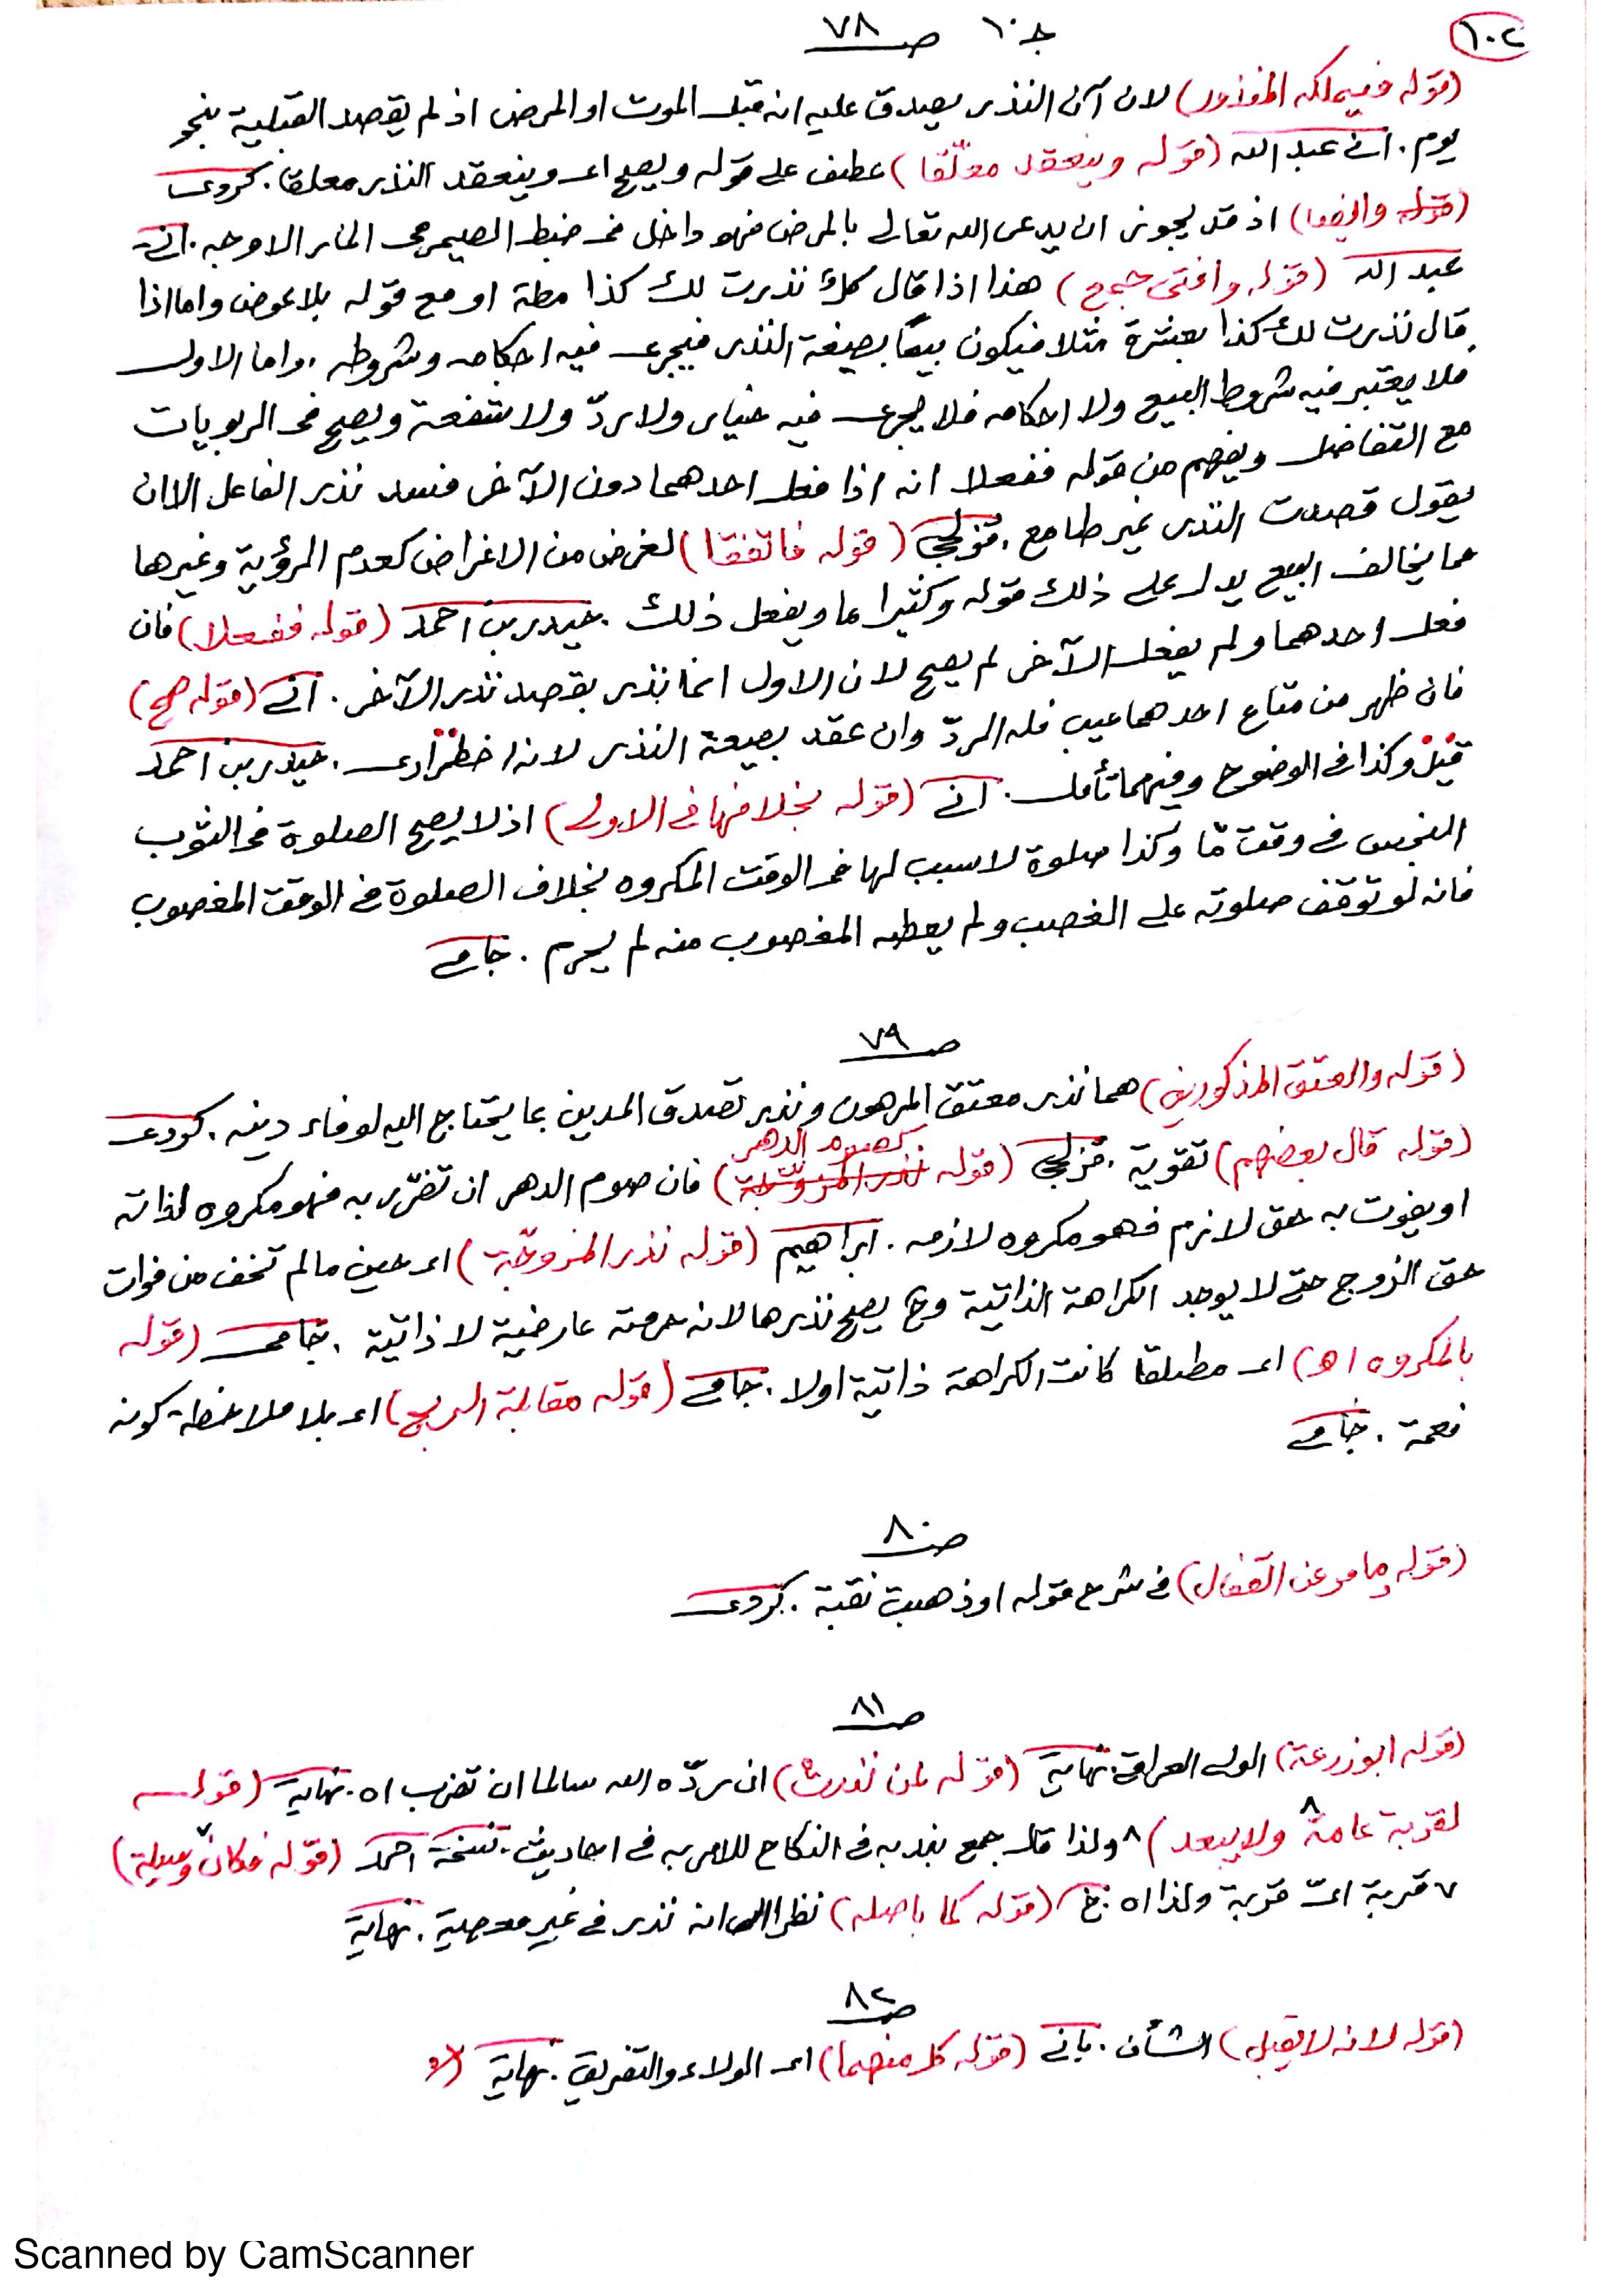 ١٠٢
جـ ١٠ صـ ٧٨
(قوله فيملكه المنذور) لان آن النذر يصدق عليه انه قبل الموت او المرض اذ لم يقصد القبلية بنحو
يوم . انى عبد الله (قوله وينعقد معلّقا) عطف على قوله ويصح اى وينعقد النذر معلقا . كردى
(قوله وايضا) اذ قد يجوز ان يدعى الله تعالى بالمرض فهو داخل فى ضبط الصيمرى المار الاوجه . انى
عبد الله (قوله وافتى جمع) هذا اذا قال كلٌ نذرت لك كذا مطة او مع قوله بلا عوض واما اذا
قال نذرت لك كذا بعشرة مثلا فيكون بيعًا بصيغة النذر فيجرى فيه احكامه وشروطه . واما الاول
فلا يعتبر فيه شروط البيع ولا احكامه فلا يجرى فيه خيار ولا ردّ ولا شفعة ويصح فى الربويات
مع التفاضل ويفهم من قوله ففعلا انه اذا فعل احدهما دون الآخر فسد نذر الفاعل الا ان
يقول قصدت النذر غير طامع . قزلجى (قوله فاتفقا) لغرض من الاغراض كعدم الرؤية وغيرها
مما يخالف البيع يدل على ذلك قوله وكثيرا ما ويفعل ذلك . حيدر بن احمد (قوله ففعلا) فان
فعل احدهما ولم يفعل الآخر لم يصح لان الاول انما نذر بقصد نذر الآخر . انى (قوله صح)
فان ظهر من متاع احدهما عيب فله الردّ وان عقد بصيغة النذر لانه اضطرارى . حيدر بن احمد
قيل وكذا فى الوضوح وفيهما تأمل . انى (قوله بخلافها فى الاولى) اذ لا يصح الصلوة فى الثوب
النجس فى وقت مّا وكذا صلوة لا سبب لها فى الوقت المكروه بخلاف الصلوة فى الوقت المغصوب
فانه لو توقف صلوته على الغصب ولم يعطه المغصوب منه لم يحرم . جامى
صـ ٧٩
(قوله والعتق المذكورين) هما نذر معتق المرهون ونذر تصدق المدين بما يحتاج اليه لوفاء دينه . كردى
(قوله قال بعضهم) تقوية . قزلجى (قوله كصوم الدهر) فان صوم الدهر ان تضرّر به فهو مكروه لذاته
او يفوت به حق لازم فهو مكروه لازمه . ابراهيم (قوله نذر المزوّجة) اى حين ما لم تخف من فوات
حق الزوج حتى لا يوجد الكراهة الذاتية وح يصح نذرها لانه حرمته عارضية لا ذاتية . جامى (قوله
بالمكروه اه) اى مطلقا كانت الكراهة ذاتية اولا . جامى (قوله مقابلة الربح) اى بلا ملاحظة كونه
نعمة . جامى
صـ ٨٠
(قوله وما مر عن القفال) فى شرح قوله او ذهبت نقبة . كردى
صـ ٨١
(قوله ابو زرعة) الولى العراقى . نهاية (قوله لمن نذرت) ان ردّه الله سالما ان تضرب اه . نهاية (قوله
لقربة عامة ٨ ولا يبعد) ٨ ولذا قال جمع بندبه فى النكاح للامر به فى احاديث . نسخة احمد (قوله فكان ٧ وسيلة)
٧ قربة اىّ قربة ولذا اه . خ (قوله كما باصله) نظرا الى انه نذر فى غير معصية . نهاية
صـ ٨٢
(قوله لانه لا يقبل) الشأن . يانى (قوله كل منهما) اى الولاء والتفريق . نهاية
Scanned by CamScanner